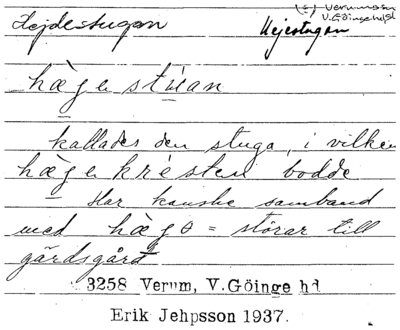 Hejdestugan Hejestugan (S) Verumsson
V. Göinge hd
hægen stúan
kallades den stuga, i vilken
hægen krésten bodde
Har kanske samband
med hægə = störar till
gärdsgård
3258 Verum, V.Göinge hd
Erik Jehpsson 1937.